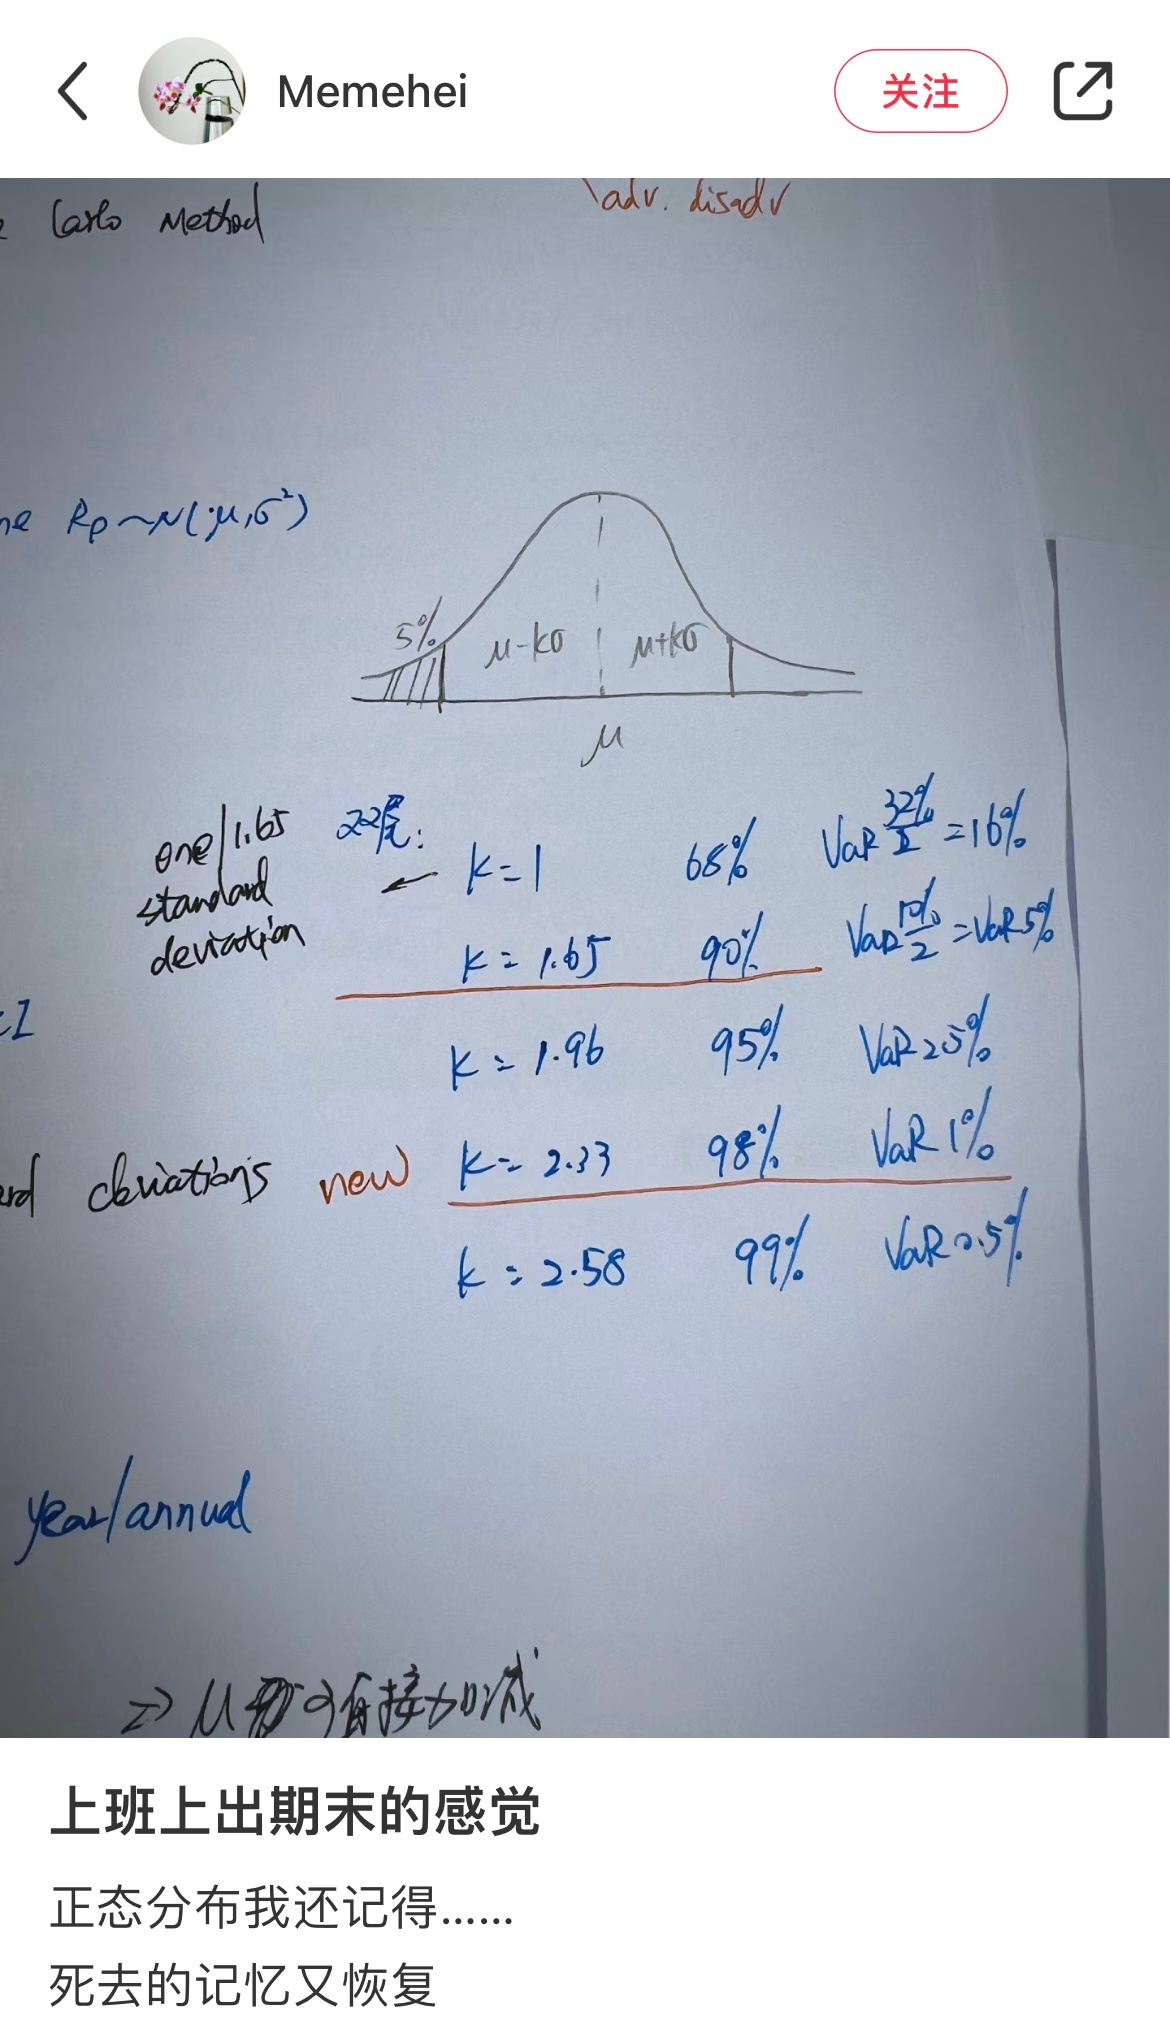 Memehei
关注
Carlo Method
adv. disadv
Rp ~ N(μ, σ²)
5%
μ-kσ
μ+kσ
μ
one/1.65
standard
deviation
双尾:
k=1 68% VaR 32%/2 =16%
k=1.65 90% VaR 10%/2 =VaR 5%
k=1.96 95% VaR 2.5%
deviations new k=2.33 98% VaR 1%
k=2.58 99% VaR 0.5%
year/annual
=> μ 可直接加减
上班上出期末的感觉
正态分布我还记得……
死去的记忆又恢复